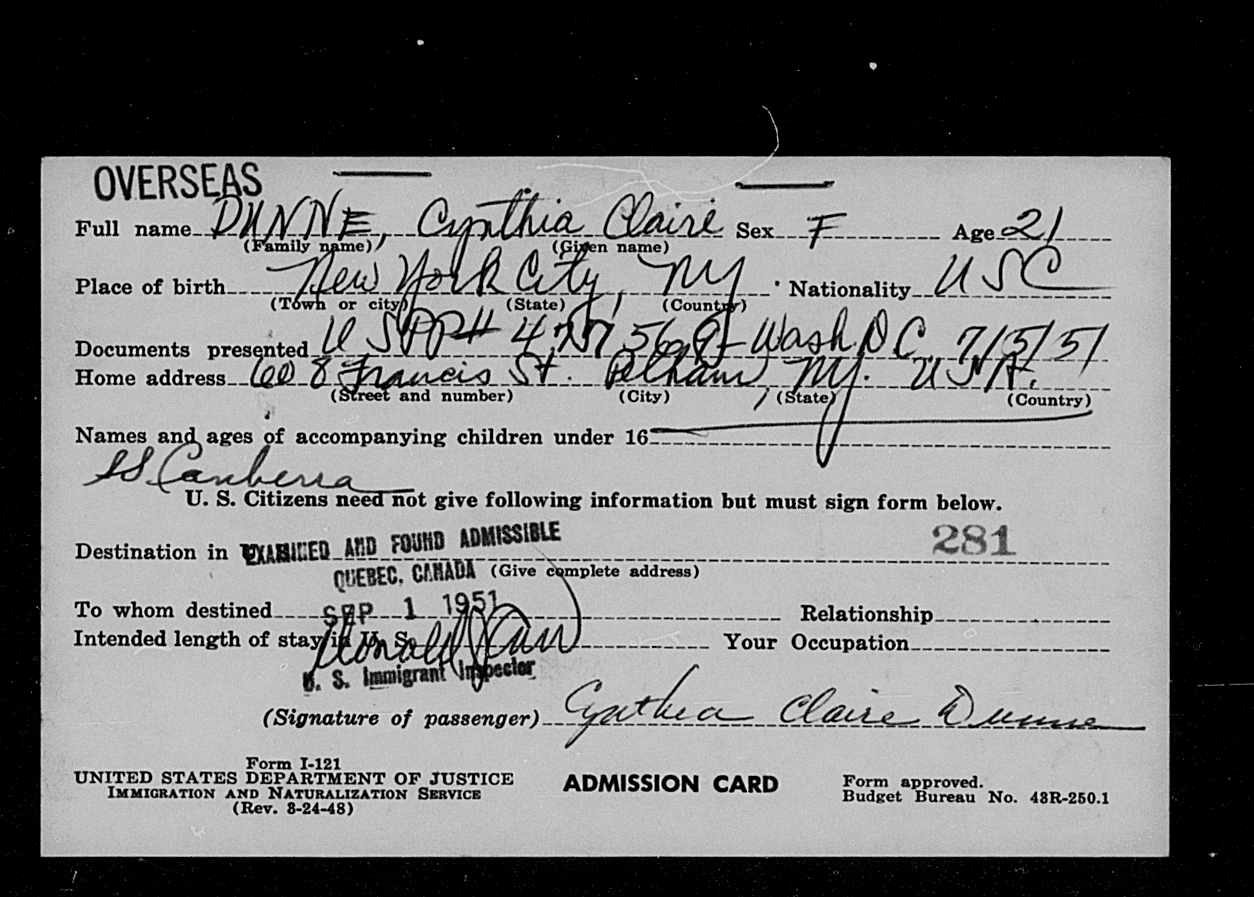 OVERSEAS
Full name DUNNE, Cynthia Claire Sex F Age 21
(Family name) (Given name)
Place of birth New York City, NY Nationality USC
(Town or city) (State) (Country)
Documents presented USPP# Wash DC 7/5/51
Home address 608 Francis St. Pelham, NY. USA.
(Street and number) (City) (State) (Country)
Names and ages of accompanying children under 16
SS Canberra
U. S. Citizens need not give following information but must sign form below.
281
Destination in EXAMINED AND FOUND ADMISSIBLE
QUEBEC, CANADA (Give complete address)
To whom destined SEP 1 1951 Relationship
Intended length of stay in U. S. Donald Your Occupation
U. S. Immigrant Inspector
(Signature of passenger) Cynthia Claire Dunne
Form I-121
UNITED STATES DEPARTMENT OF JUSTICE
IMMIGRATION AND NATURALIZATION SERVICE
(Rev. 8-24-48)
ADMISSION CARD
Form approved.
Budget Bureau No. 43R-250.1